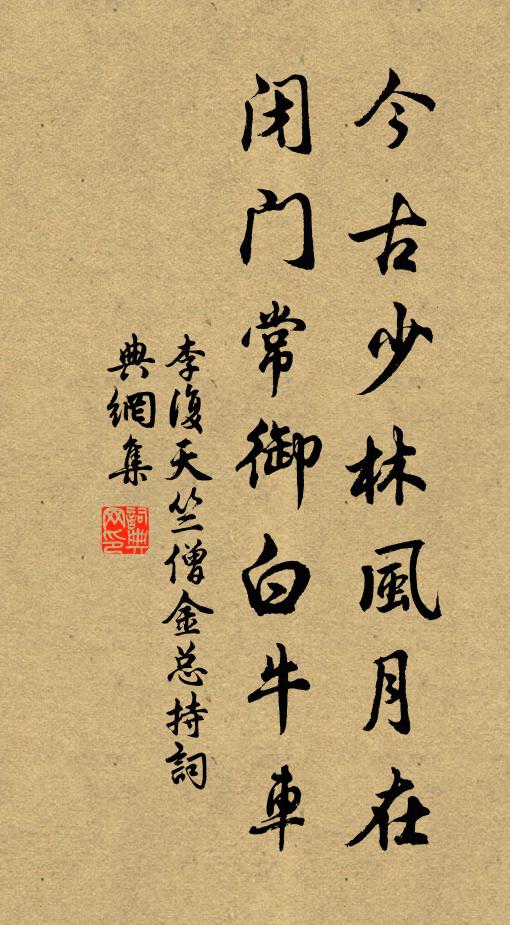 今古少林風月在
闭门常御白牛車
李復天竺僧金总持詞
典網集
詞典网印